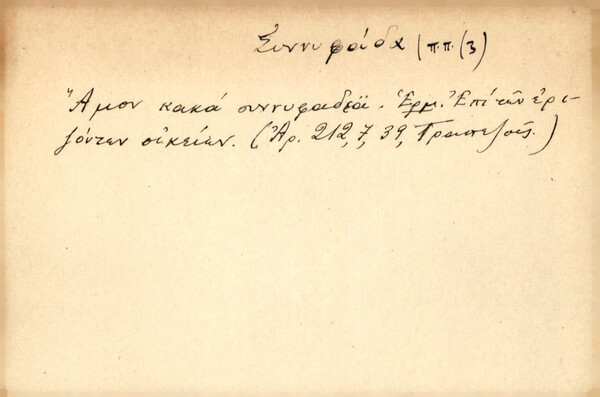 Συννυφάδα (π.π. (3)
Ἄμον κακά συννυφαδία. Ἑρμ. Ἐπί τῶν ἐρι-
ζόντων οἰκείων. (Ἀρ. 212, 7, 39, Τραπεζοῦς.)